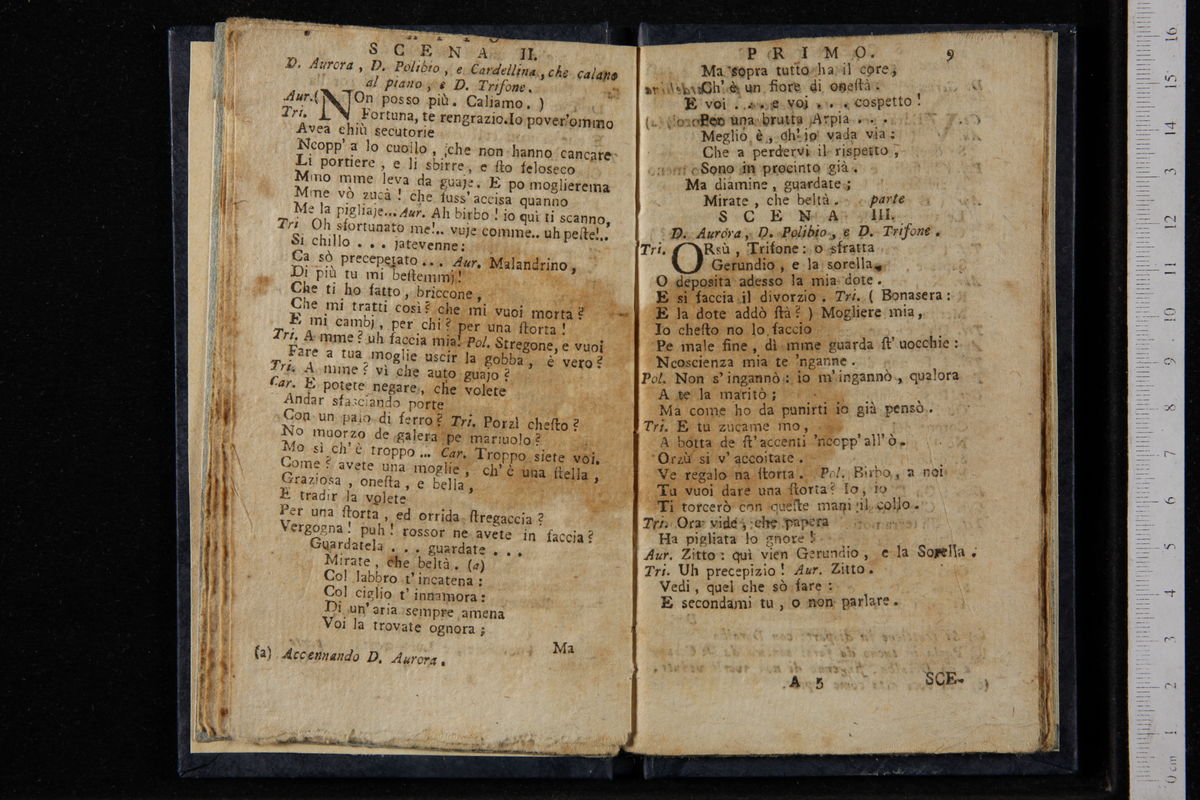 SCENA II.
D. Aurora, D. Polibio, e Cardellina, che calano
al piano, e D. Trifone.
Aur. (NOn posso più. Caliamo. )
Tri. Fortuna, te rengrazio. Io pover'ommo
Avea chiù secutorie
Ncopp' a lo cuollo, che non hanno cancare
Li portiere, e li sbirre, e sto feloseco
Mmo mme leva da guaje. E po moglierema
Mme vò zucà! che fuss' accisa quanno
Me la pigliaje... Aur. Ah birbo! io quì ti scanno,
Tri Oh sfortunato me!.. vuje comme.. uh peste!..
Si chillo ... jatevenne:
Ca sò precepetato ... Aur. Malandrino,
Di più tu mi bestemmj!
Che ti ho fatto, briccone,
Che mi tratti così? che mi vuoi morta?
E mi cambj, per chi? per una storta!
Tri. A mme? uh faccia mia! Pol. Stregone, e vuoi
Fare a tua moglie uscir la gobba, è vero?
Tri. A mme? vì che auto guajo?
Car. E potete negare, che volete
Andar sfasciando porte
Con un palo di ferro? Tri. Porzì chesto?
No muorzo de galera pe mariuolo?
Mo sì ch'è troppo ... Car. Troppo siete voi.
Come? avete una moglie, ch'è una stella,
Graziosa, onesta, e bella,
E tradir la volete
Per una storta, ed orrida stregaccia?
Vergogna! puh! rossor ne avete in faccia?
Guardatela ... guardate ...
Mirate, che beltà. (a)
Col labbro t'incatena:
Col ciglio t'innamora:
Di un'aria sempre amena
Voi la trovate ognora;
Ma
(a) Accennando D. Aurora.
PRIMO. 9
Ma sopra tutto ha il core,
Ch'è un fiore di onestà.
E voi ... e voi ... cospetto!
Per una brutta Arpia ...
Meglio è, ch'io vada via:
Che a perdervi il rispetto,
Sono in procinto già.
Ma diamine, guardate;
Mirate, che beltà. parte
SCENA III.
D. Aurora, D. Polibio, e D. Trifone.
Tri. ORsù, Trifone: o sfratta
Gerundio, e la sorella,
O deposita adesso la mia dote.
E si faccia il divorzio. Tri. ( Bonasera:
E la dote addò stà? ) Mogliere mia,
Io chesto no lo faccio
Pe male fine, dì mme guarda st'uocchie:
Ncoscienza mia te 'nganne.
Pol. Non s'ingannò: io m'ingannò, qualora
A te la maritò;
Ma come ho da punirti io già pensò.
Tri. E tu zucame mo,
A botta de st'accenti 'ncopp'all'ò.
Orzù si v'accoitate.
Ve regalo na storta. Pol. Birbo, a noi
Tu vuoi dare una storta? Io, io
Ti torcerò con queste mani il collo.
Tri. Ora vide, che papera
Ha pigliata lo gnore!
Aur. Zitto: quì vien Gerundio, e la Sorella.
Tri. Uh precepizio! Aur. Zitto.
Vedi, quel che sò fare:
E secondami tu, o non parlare.
A 5
SCE-